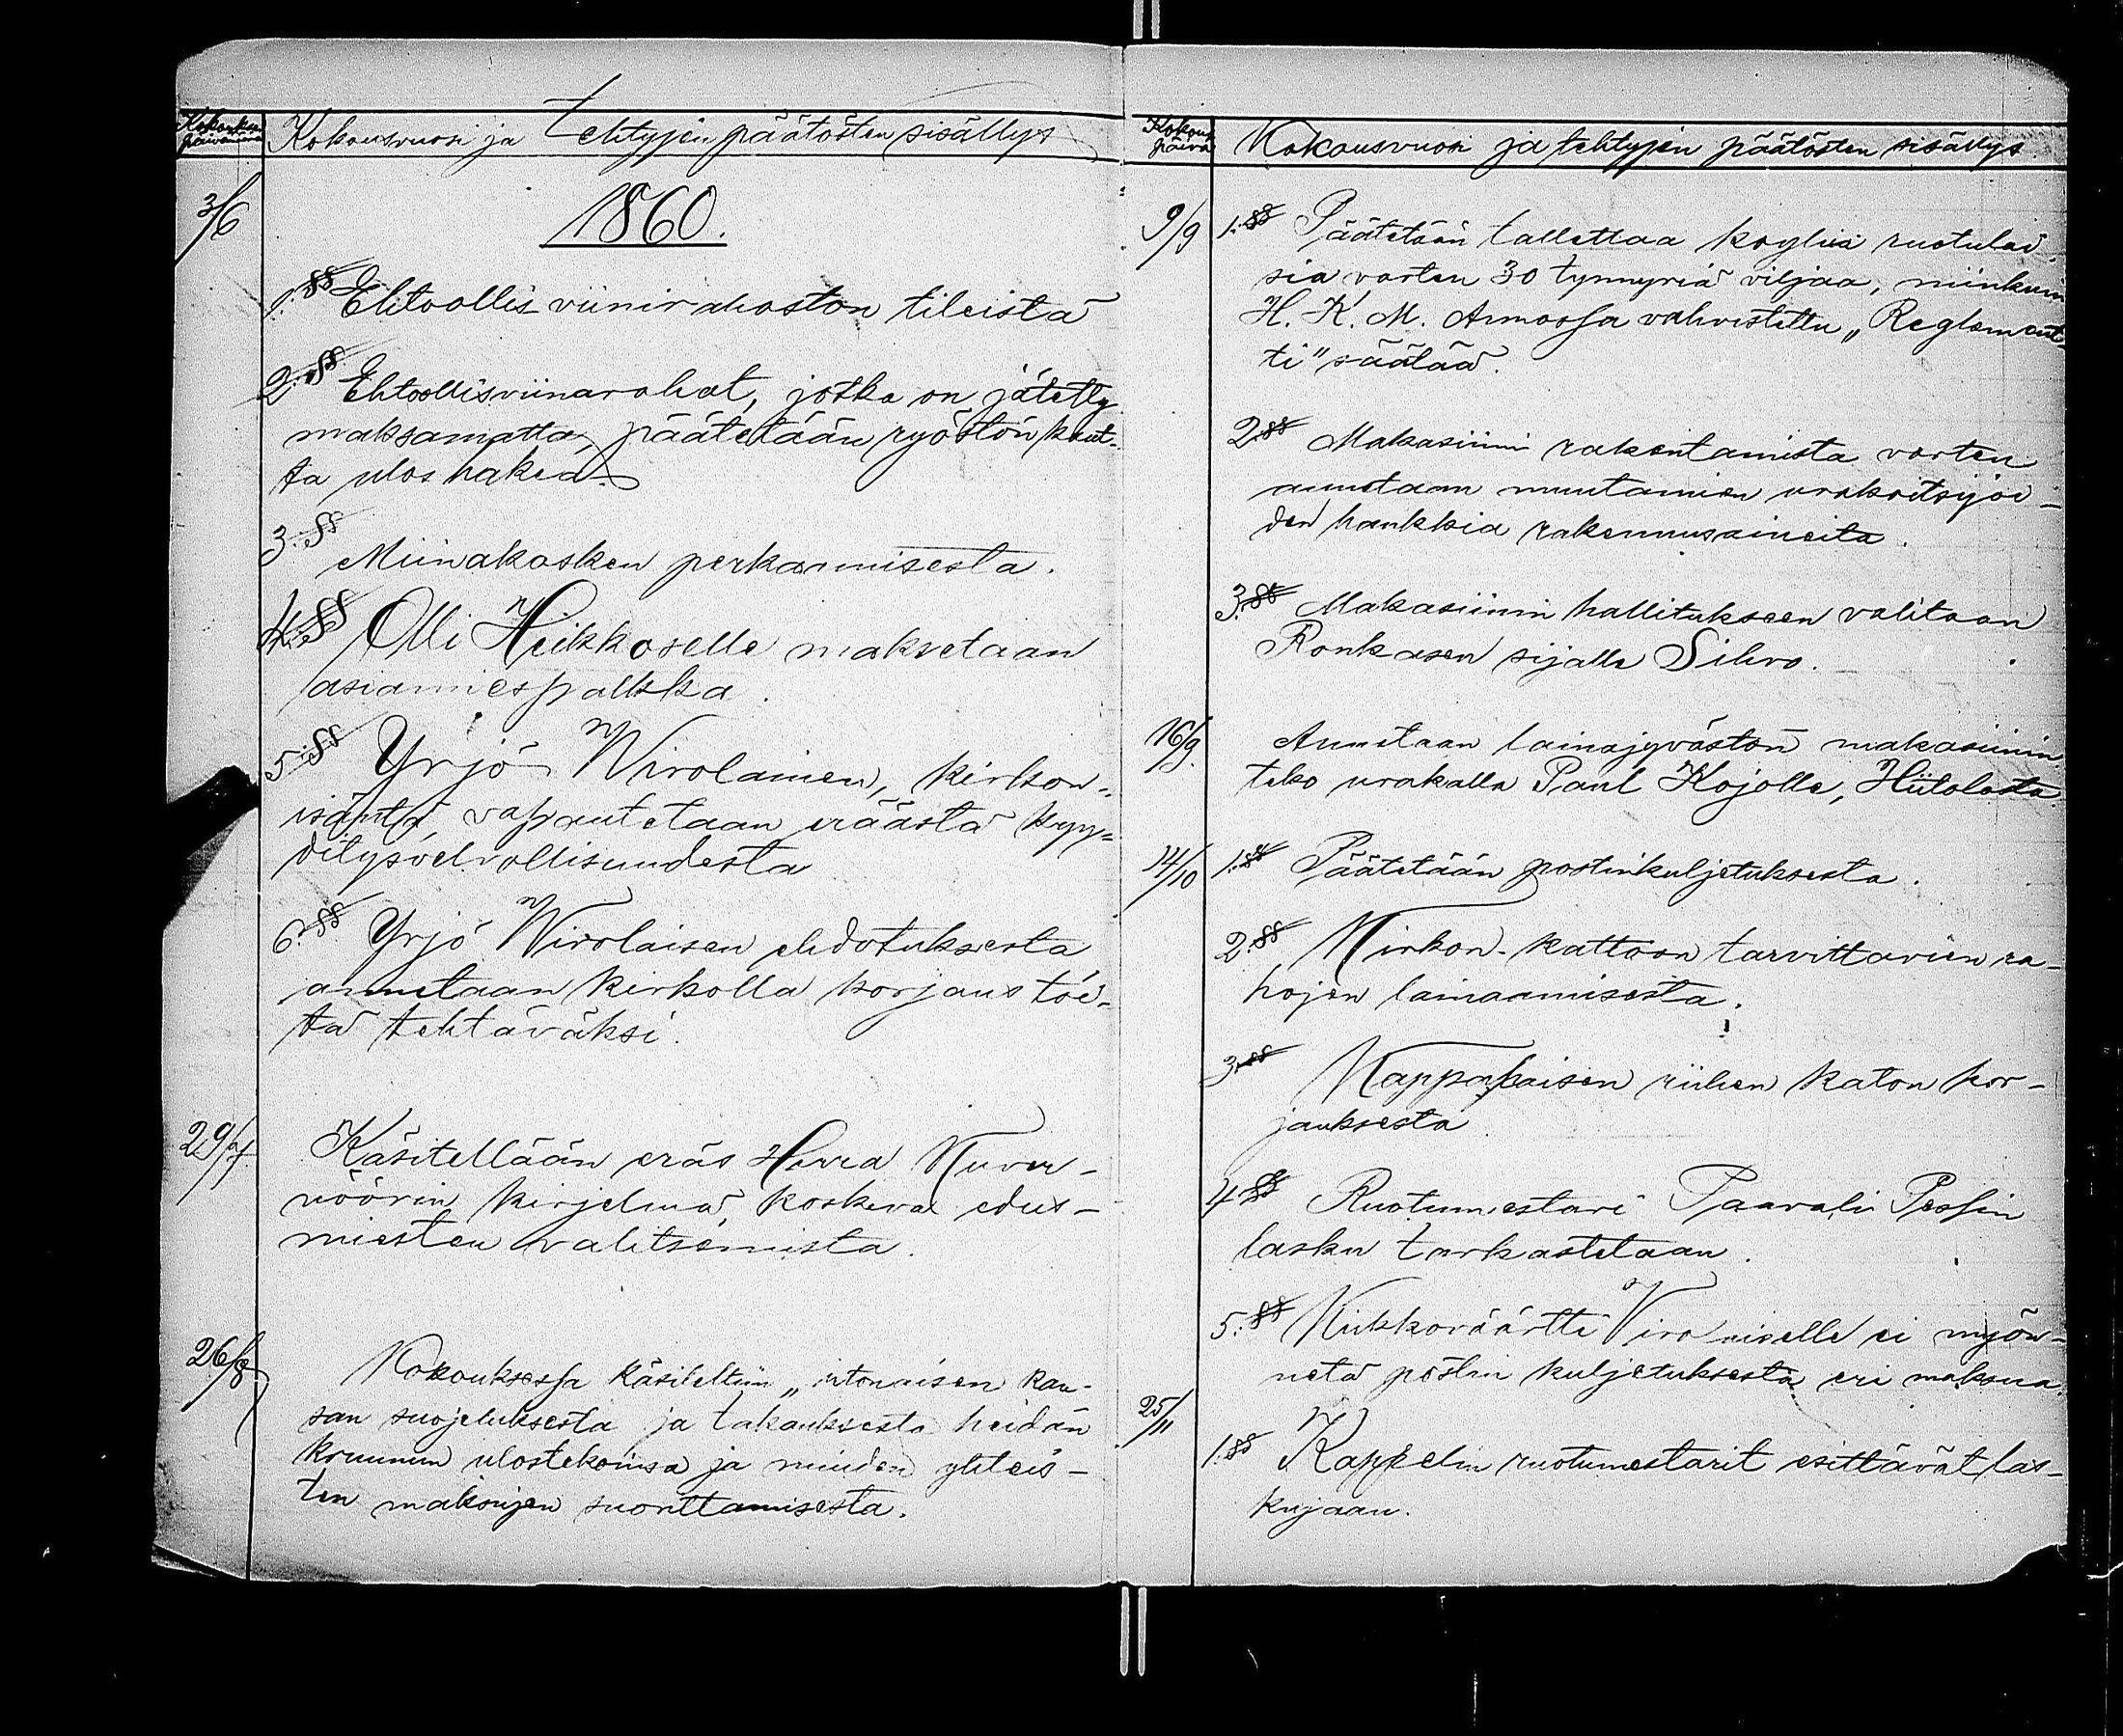 Kokouksen
päivämäärä
Kokousvuosi ja tehtyjen päätösten sisällys
3/6
1860.
1.§§ Ehtoollisviinirahaston tileistä
2.§§ Ehtoollisviinarahat, jotka on jätetty
maksamatta, päätetään ryöstön kaut-
ta ulos hakea.
3.§§
Miinakosken perkaamisesta.
4.§§ Olli Heikkoselle maksetaan
asiamiespalkka.
5.§§ Yrjö Wirolainen, kirkon-
isäntä, vapautetaan eräästä kyy-
ditysvelvollisuudesta
6.§§ Yrjö Wirolaisen ehdotuksesta
annetaan kirkolla korjaus töi-
tä tehtäväksi.
29/7
Käsitellään eräs Herra Kuver-
nöörin kirjelmä, koskeva edus-
miesten valitsemista.
26/8
Kokouksessa käsiteltiin „irtonaisen kan-
san suojeluksesta ja takauksesta heidän
kruunun ulostekoinsa ja muiden yhteis-
ten maksujen suorittamisesta.
Kokous
päivä
Kokousvuosi ja tehtyjen päätösten sisällys
9/9
1.§§ Päätetään tallettaa köyhiä ruotulai
sia varten 30 tynnyriä viljaa, niinkuin
H. K. M. Armossa vahvistettu „Reglement-
ti" säätää.
2.§§ Makasiinin rakentamista varten
annetaan muutamien urakoitsijoi-
den hankkia rakennusaineita.
3.§§ Makasiinin hallitukseen valitaan
Ronkasen sijalle Sihvo.
16/9.
Annetaan lainajyvästön makasiinin
teko urakalla Paul Kojolle, Hiitolasta
14/10
1.§§ Päätetään postinkuljetuksesta.
2.§§ Kirkon-kattoon tarvittavien ra-
hojen lainaamisesta.
3.§§ Kappalaisen riihen katon kor-
jauksesta
4.§§ Ruotumestari Paavali Pessin
lasku tarkastetaan.
5.§§ Kiikkoväärtti Viroaiselle ei myön-
netä postin kuljetuksesta eri maksua.
25/11
1.§§ Kappelin ruotumestarit esittävät las-
kujaan.